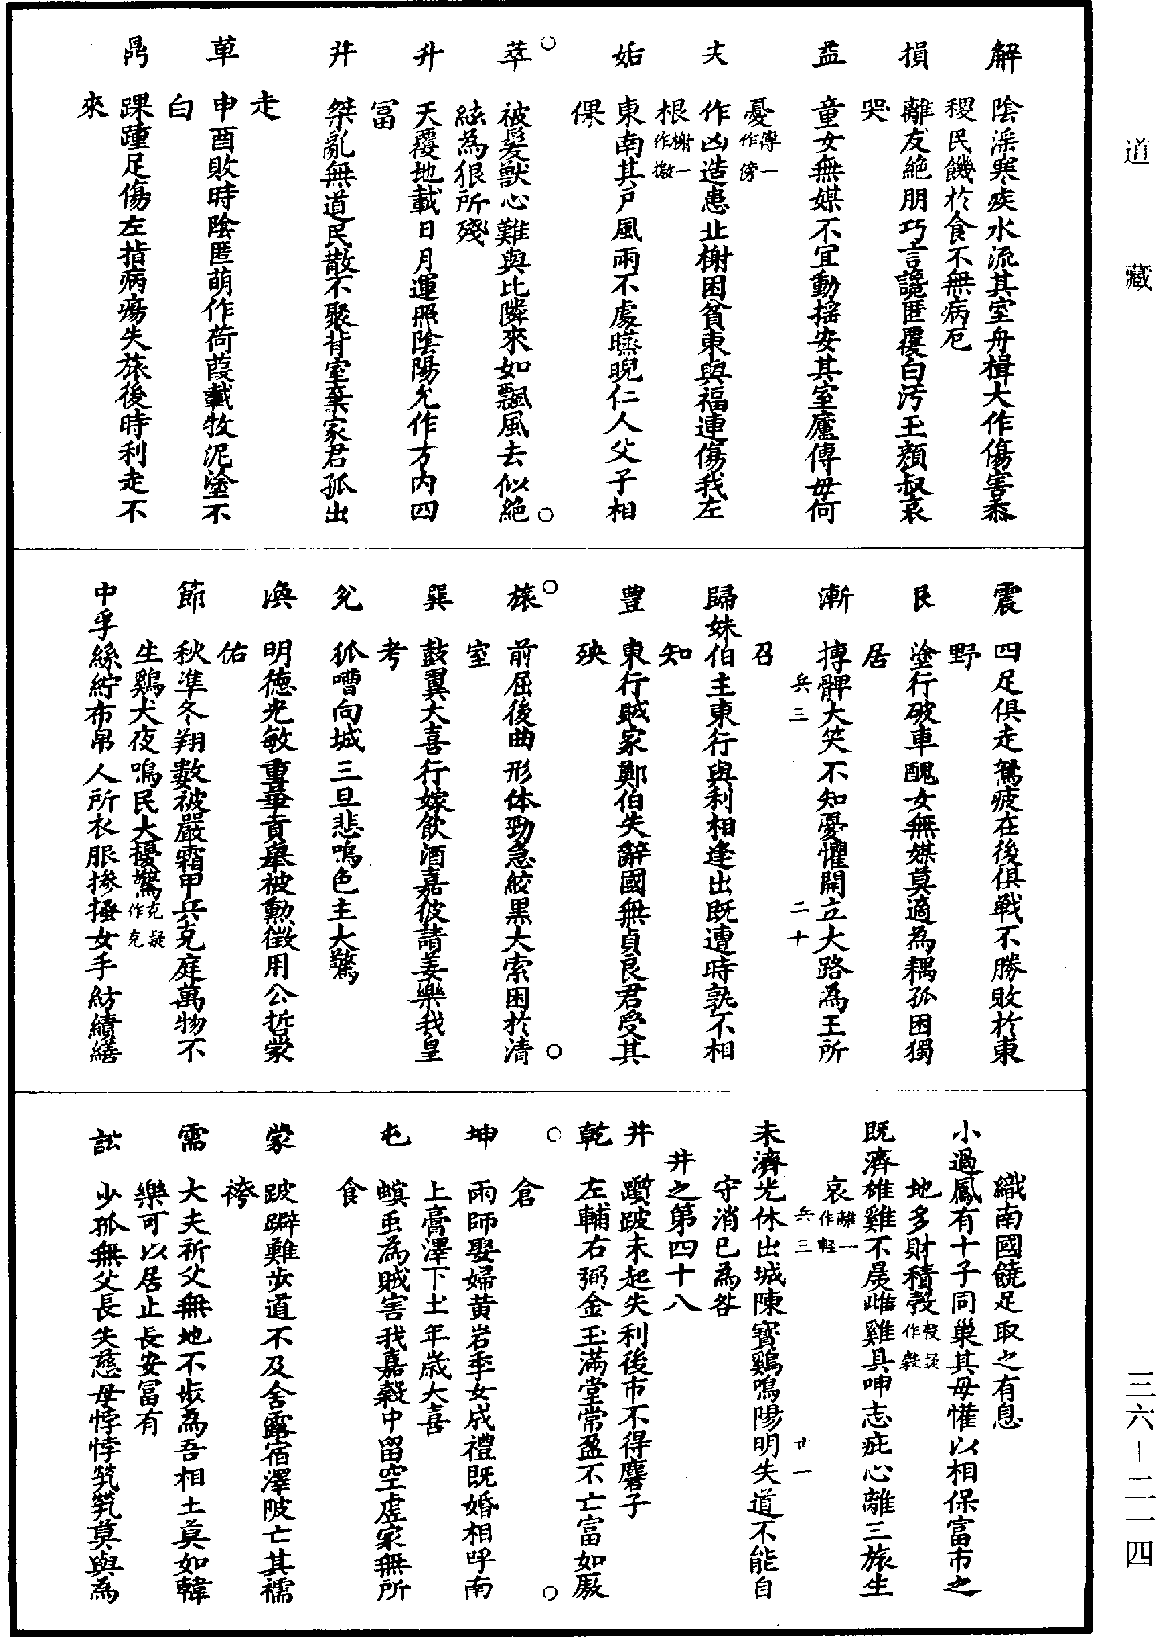 道藏
三六—二一四
解 陰淫寒疾水流其室舟楫大作傷害黍
稷民饑於食不無病厄
損 離友絕朋巧言讒匿覆白污玉顏叔哀
哭
益 童女無媒不宜動搖安其室廬傅母何
憂傅一作傍
夬 作凶造患北榭困貧東與福連傷我左
根榭一作檄
姤 東南其戶風雨不處曣晛仁人父子相
保
萃 被髮獸心難與比隣來如飄風去似絕
絃為狼所殘
升 天覆地載日月運照陰陽允作方內四
富
井 桀亂無道民散不聚背室棄家君孤出
走
革 申酉敗時陰匿萌作荷葭載牧泥塗不
白
鼎 踝踵足傷左指病瘍失旅後時利走不
來
震 四足俱走駑疲在後俱戰不勝敗於東
野
艮 塗行破車醜女無媒莫適為耦孤困獨
居
漸 搏髀大笑不知憂懼開立大路為王所
召
兵三 二十
歸妹 伯主東行與利相逢出既遭時孰不相
知
豐 東行賊家鄭伯失辭國無貞良君受其
殃
旅 前屈後曲形体勁急絞黑大索困於清
室
巽 鼓翼大喜行嫁飲酒嘉彼諸姜樂我皇
考
兌 狐嘈向城三旦悲鳴邑主大驚
渙 明德光敏重華貢舉被勳徵用公哲蒙
佑
節 秋準冬翔數被嚴霜甲兵克庭萬物不
生鷄犬夜鳴民大擾驚克疑作充
中孚 絲紵布帛人所衣服摻摻女手紡績繕
織南國饒足取之有息
小過 鳳有十子同巢其母懽以相保富市之
地多財積彀彀疑作穀
既濟 雄雞不晨雌雞具呻志疵心離三旅生
哀離一作輕
未濟 光休出城陳寶鷄鳴陽明失道不能自
守消亡為咎
兵三 廿一
井之第四十八
井 躓跛未起失利後市不得麞子
乾 左輔右弼金玉滿堂常盈不亡富如廒
倉
坤 雨師娶婦黃岩季女成禮既婚相呼南
上膏澤下土年歲大喜
屯 螟虫為賊害我嘉穀中留空虛家無所
食
蒙 跛躃難步遲不及舍露宿澤陂亡其襦
袴
需 大夫祈父無地不步為吾相土莫如韓
樂可以居止長安富有
訟 少孤無父長失慈母悖悖煢煢莫與為